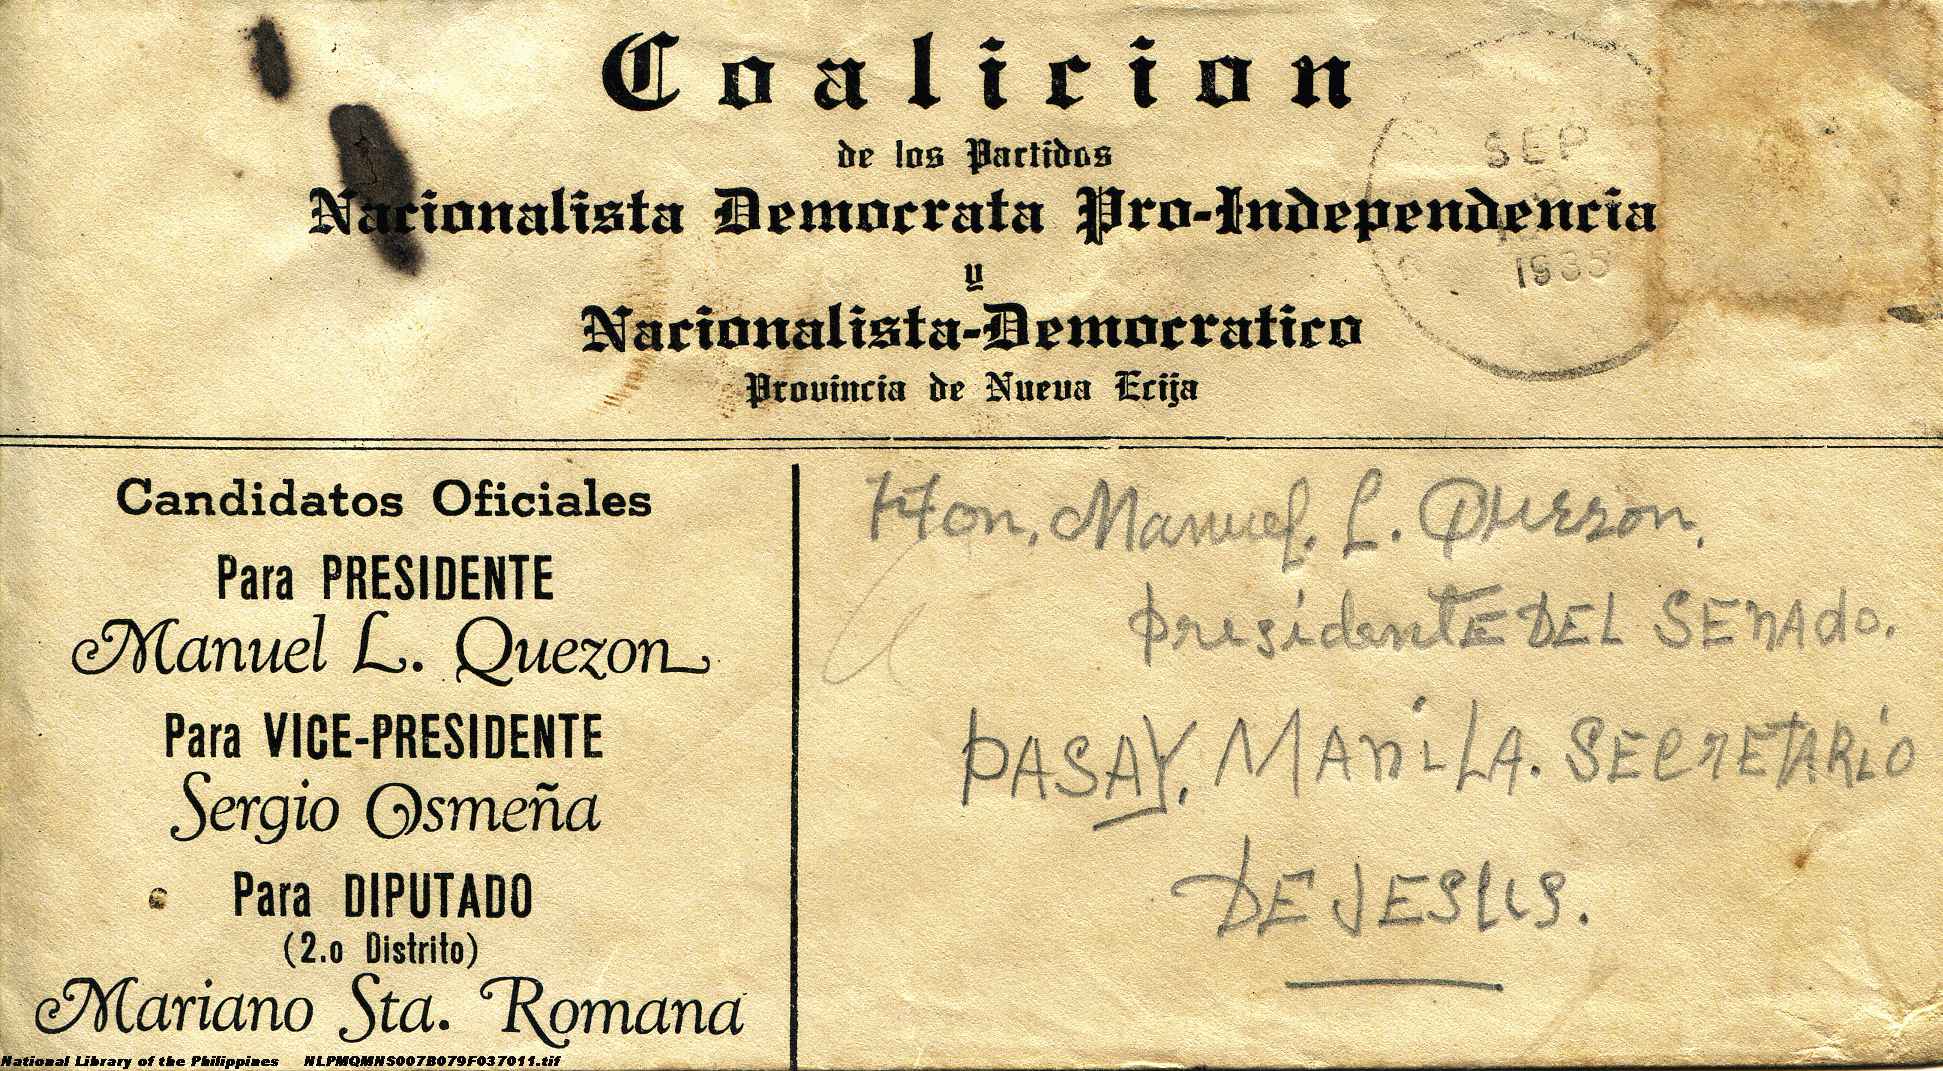 Coalicion
de los Partidos
Nacionalista Democrata Pro-Independencia
y
Nacionalista-Democratico
Provincia de Nueva Ecija
SEP
1935
Candidatos Oficiales
Para PRESIDENTE
Manuel L. Quezon
Para VICE-PRESIDENTE
Sergio Osmeña
Para DIPUTADO
(2.o Distrito)
Mariano Sta. Romana
Hon. Manuel. L. Quezon.
PresidentE DEL SENAdo.
PASAY, MANiLA. SECRETARiO
DE JESUS.
National Library of the Philippines NLPMQMNS007B079F037011.tif